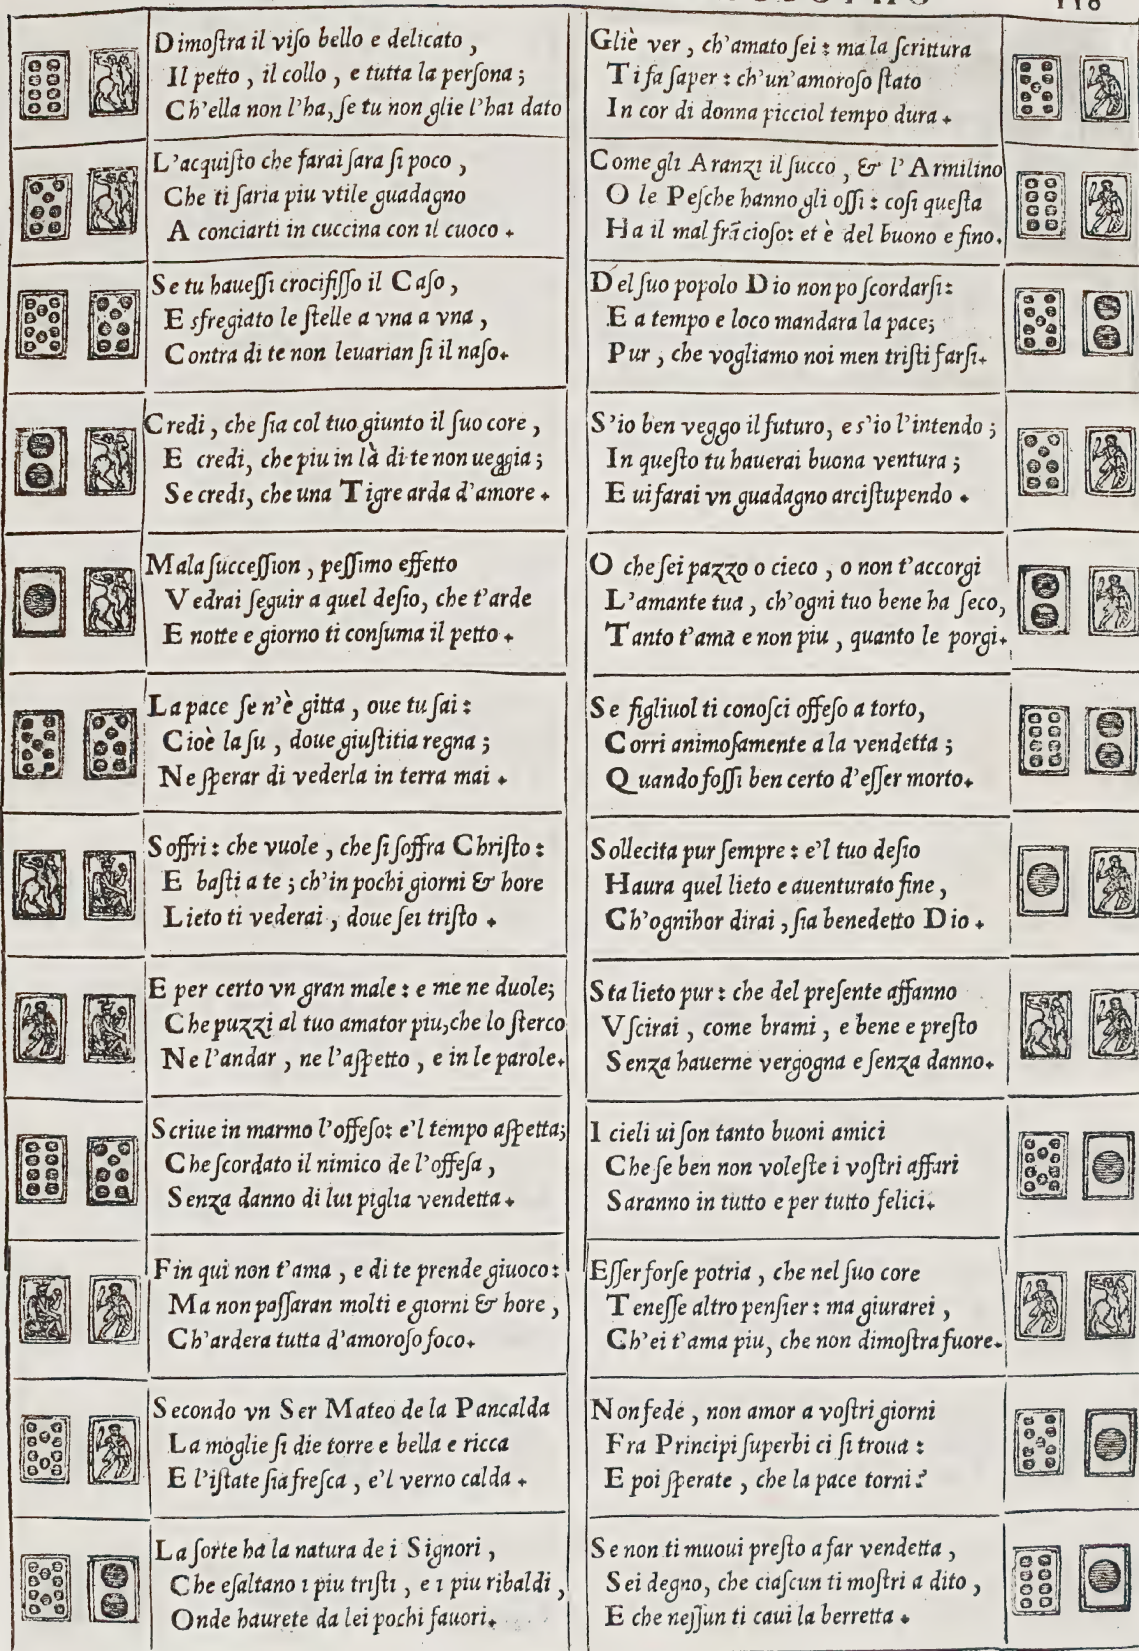 118
Dimoſtra il viſo bello e delicato,
Il petto, il collo, e tutta la perſona;
Ch'ella non l'ha, ſe tu non glie l'hai dato
L'acquiſto che farai ſara ſi poco,
Che ti ſaria piu vtile guadagno
A conciarti in cuccina con il cuoco.
Se tu haueſſi crocifiſſo il Caſo,
E sfregiato le ſtelle a vna a vna,
Contra di te non leuarian ſi il naſo.
Credi, che ſia col tuo giunto il ſuo core,
E credi, che piu in là di te non ueggia;
Se credi, che una Tigre arda d'amore.
Mala ſucceſſion, peſſimo effetto
Vedrai ſeguir a quel deſio, che t'arde
E notte e giorno ti conſuma il petto.
La pace ſe n'è gitta, oue tu ſai:
Cioè la ſu, doue giuſtitia regna;
Ne ſperar di vederla in terra mai.
Soffri: che vuole, che ſi ſoffra Chriſto:
E baſti a te; ch'in pochi giorni & hore
Lieto ti vederai, doue ſei triſto.
E per certo vn gran male: e me ne duole;
Che puzzi al tuo amator piu, che lo ſterco
Ne l'andar, ne l'aſpetto, e in le parole.
Scriue in marmo l'offeſo: e'l tempo aſpetta;
Che ſcordato il nimico de l'offeſa,
Senza danno di lui piglia vendetta.
Fin qui non t'ama, e di te prende giuoco:
Ma non paſſaran molti e giorni & hore,
Ch'ardera tutta d'amoroſo foco.
Secondo vn Ser Mateo de la Pancalda
La moglie ſi die torre e bella e ricca
E l'iſtate ſia freſca, e'l verno calda.
La ſorte ha la natura de i Signori,
Che eſaltano i piu triſti, e i piu ribaldi,
Onde haurete da lei pochi fauori.
Gliè ver, ch'amato ſei: ma la ſcrittura
Ti fa ſaper: ch'un'amoroſo ſtato
In cor di donna picciol tempo dura.
Come gli Aranzi il ſucco, & l'Armilino
O le Peſche hanno gli oſſi: coſi queſta
Ha il mal frãcioſo: et è del buono e fino.
Del ſuo popolo Dio non po ſcordarſi:
E a tempo e loco mandara la pace;
Pur, che vogliamo noi men triſti farſi.
S'io ben veggo il futuro, e s'io l'intendo;
In queſto tu hauerai buona ventura;
E ui farai vn guadagno arciſtupendo.
O che ſei pazzo o cieco, o non t'accorgi
L'amante tua, ch'ogni tuo bene ha ſeco,
Tanto t'ama e non piu, quanto le porgi.
Se figliuol ti conoſci offeſo a torto,
Corri animoſamente a la vendetta;
Quando foſſi ben certo d'eſſer morto.
Sollecita pur ſempre: e'l tuo deſio
Haura quel lieto e auenturato fine,
Ch'ognihor dirai, ſia benedetto Dio.
Sta lieto pur: che del preſente affanno
Vſcirai, come brami, e bene e preſto
Senza hauerne vergogna e ſenza danno.
I cieli ui ſon tanto buoni amici
Che ſe ben non voleſte i voſtri affari
Saranno in tutto e per tutto felici.
Eſſer forſe potria, che nel ſuo core
Teneſſe altro penſier: ma giurarei,
Ch'ei t'ama piu, che non dimoſtra fuore.
Non fede, non amor a voſtri giorni
Fra Principi ſuperbi ci ſi troua:
E poi ſperate, che la pace torni?
Se non ti muoui preſto a far vendetta,
Sei degno, che ciaſcun ti moſtri a dito,
E che neſſun ti caui la berretta.